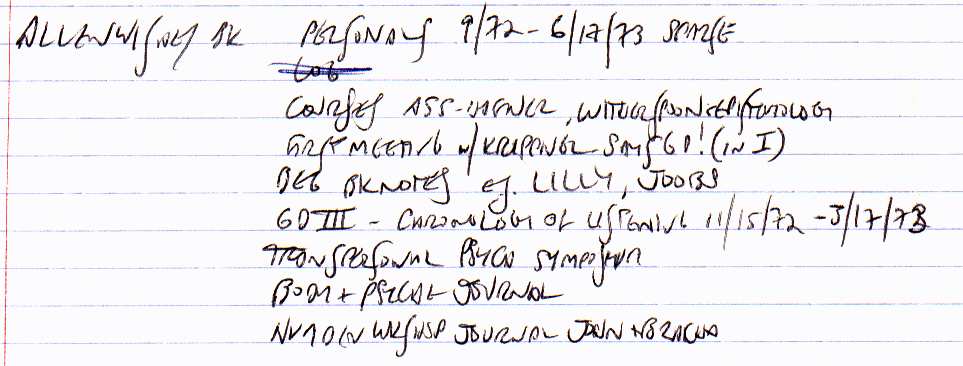 ALLENWISHES BK PERSONALS 9/72 - 6/17/73 SPARSE
COURSES ASS-WAGNER, WITHERSPOON=EPISTEMOLOGY
FIRST MEETING W/KRIPPNER SAYS GD! (IN I)
BEG BKNOTES eg. LILLY, JOOBS
GD III - CHRONOLOGY OF LISTENING 11/15/72 - 3/17/73
TRANSPERSONAL PSYCH SYMPOSIUM
BODY + JOURNAL
WKSHSP JOURNAL JOHN +